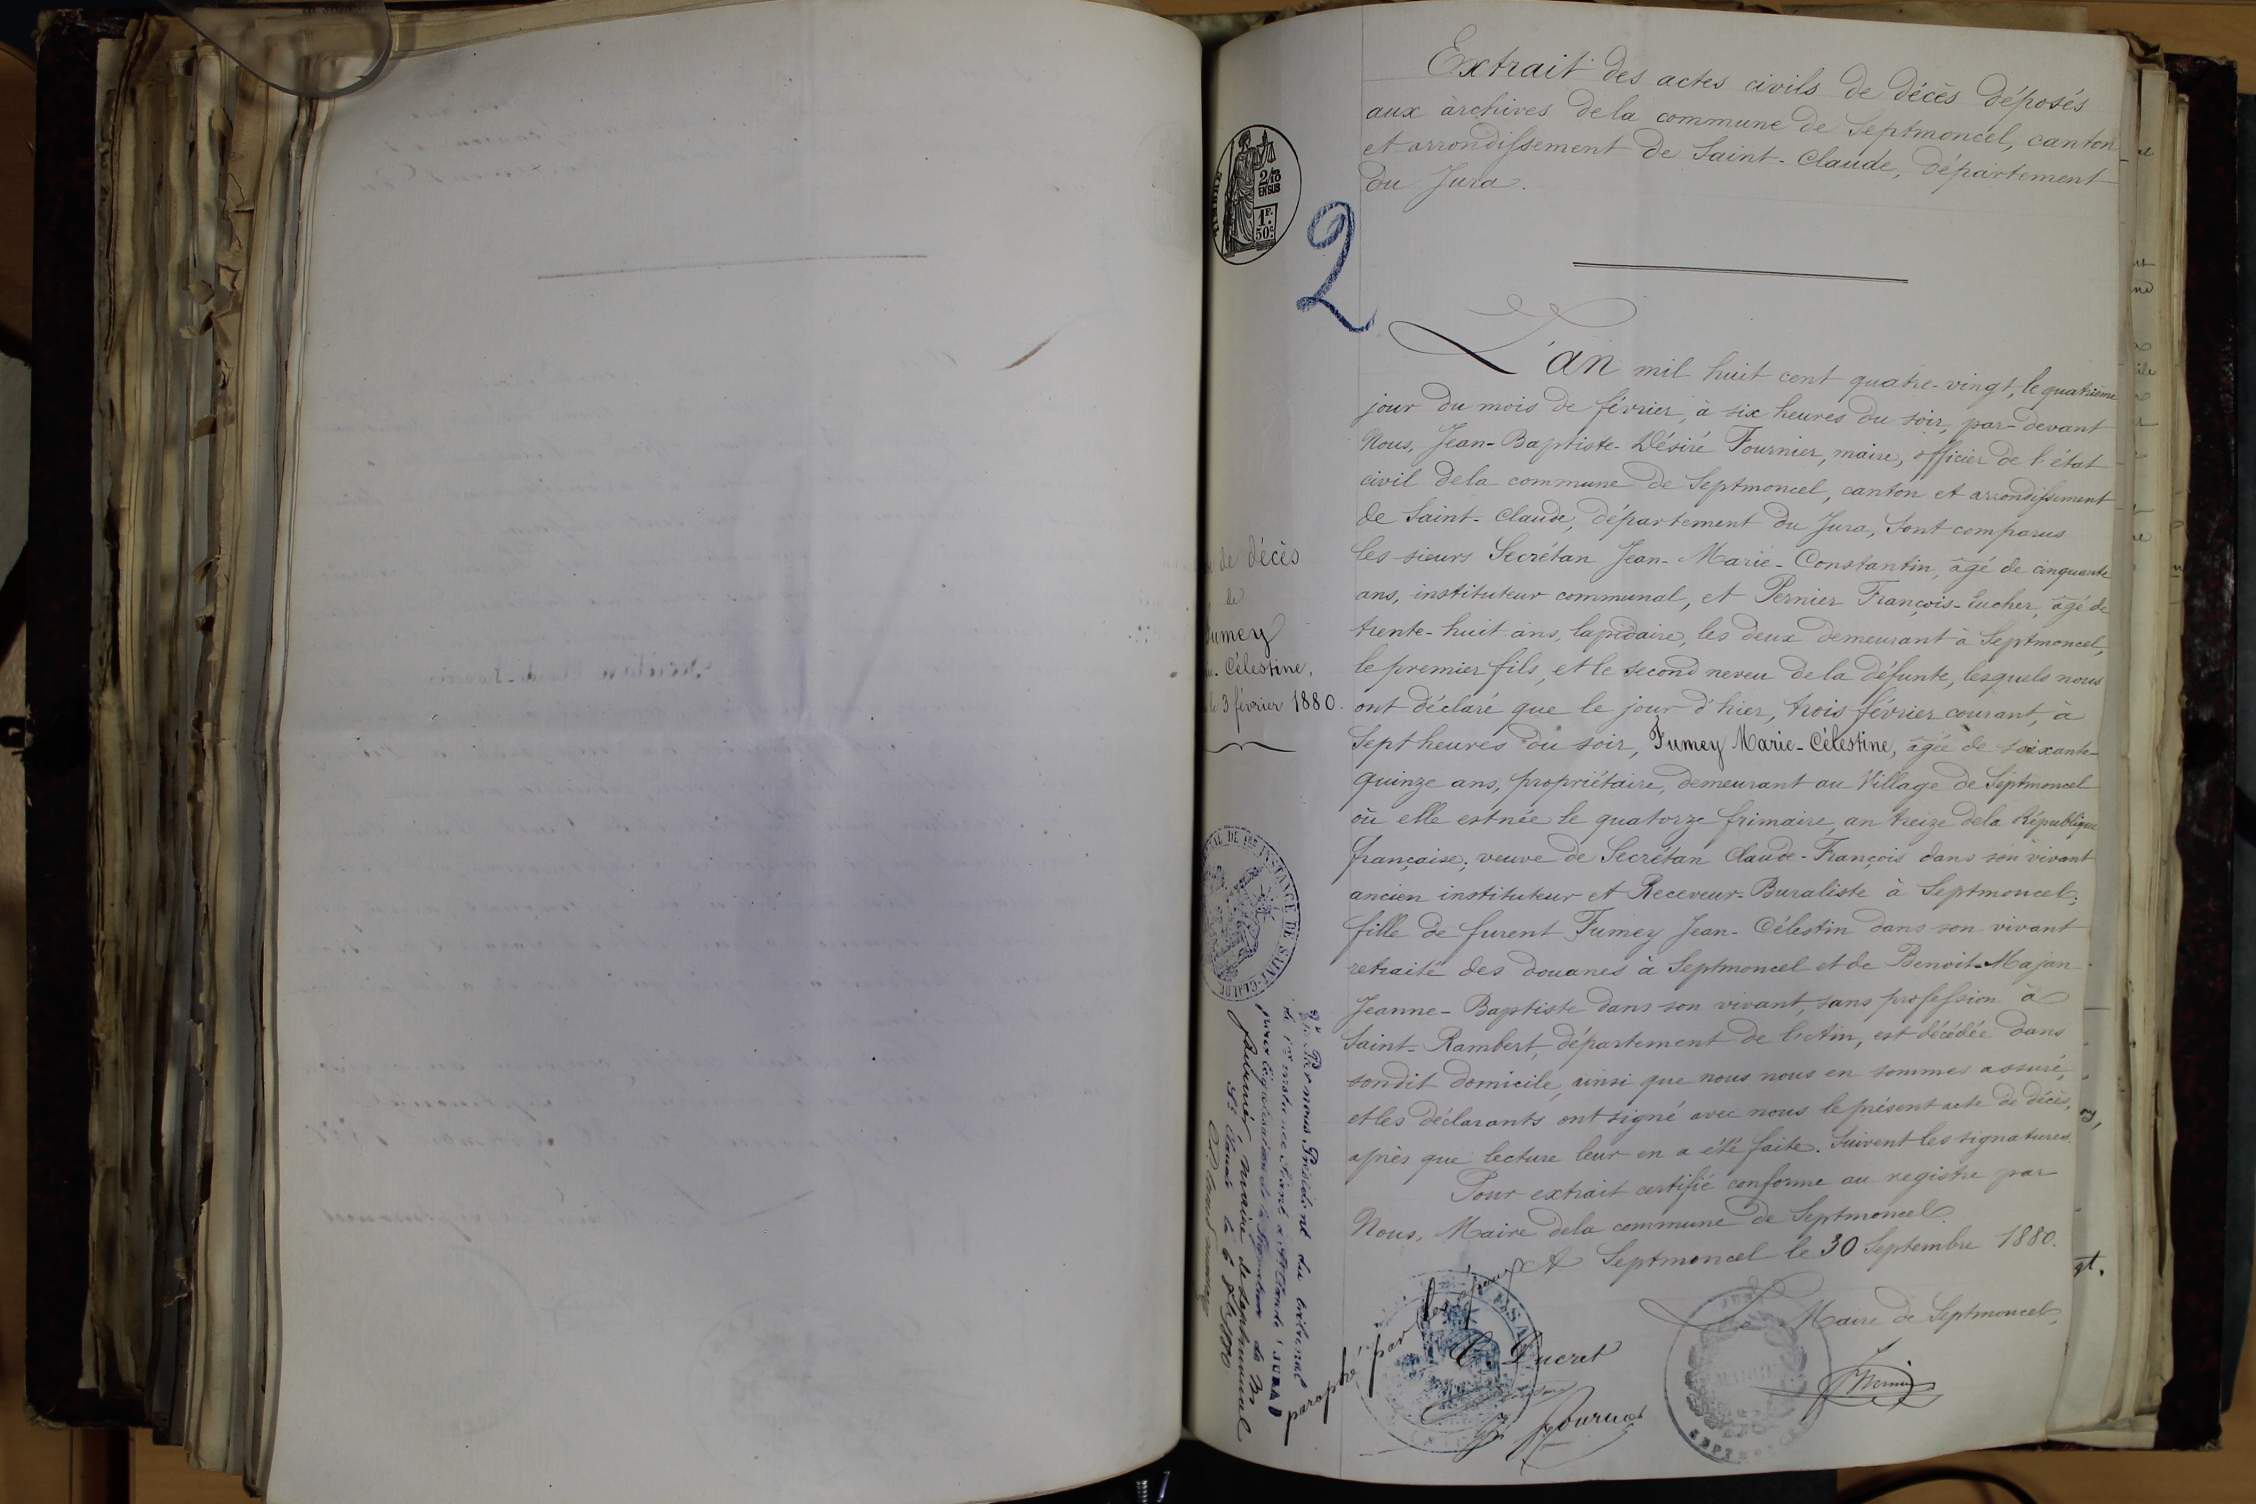 Extrait des actes civils de décès déposés
aux archives dela commune de Septmoncel, canton
et arrondissement de Saint-Claude, département
du Jura.
2/10
EN SUS
1F.
50C.
2
L'an mil huit cent quatre-vingt, le quatrième
jour du mois de février, à six heures du soir, par-devant
Nous, Jean-Baptiste-Désiré Fournier, maire, officier de l'état
civil dela commune de Septmoncel, canton et arrondissement
de Saint-Claude, département du Jura, sont comparus
les sieurs Secrétan Jean-Marie-Constantin, âgé de cinquante
ans, instituteur communal, et Pernier François-Eucher, âgé de
trente-huit ans, lapidaire, les deux demeurant à Septmoncel,
le premier fils, et le second neveu de la défunte, lesquels nous
ont déclaré que le jour d'hier, trois février courant, à
Sept heures du soir, Fumey Marie-Célestine, âgée de soixante-
quinze ans, propriétaire, demeurant au Village de Septmoncel
où elle est née le quatorze frimaire, an treize dela République
française; veuve de Secrétan Claude-François dans son vivant
ancien instituteur et Receveur-Buraliste à Septmoncel;
fille de furent Fumey Jean-Célestin dans son vivant
retraité des douanes à Septmoncel et de Benoit-Majan
Jeanne-Baptiste dans son vivant, sans profession à
Saint-Rambert, département de l'Ain, est décédée dans
sondit domicile, ainsi que nous nous en sommes assuré,
et les déclarants ont signé avec nous le présent acte de décès,
après que lecture leur en a été faite. Suivent les signatures.
Pour extrait certifié conforme au registre par
Nous, Maire dela commune de Septmoncel.
A Septmoncel le 30 Septembre 1880.
Maire de Septmoncel,
de décès
de
Fumey
Célestine,
le 3 février 1880.
INSTANCE DE SAINT-CLAUDE
Vu Par nous Président du tribunal
de 1ère instance séant à St Claude (JURA)
pour légalisation de la signature de Mr
fournier, maire de septmoncel
St Claude le 6 8bre 1880
paraphé par les époux
C. Ducret
Fournier
MAIRIE